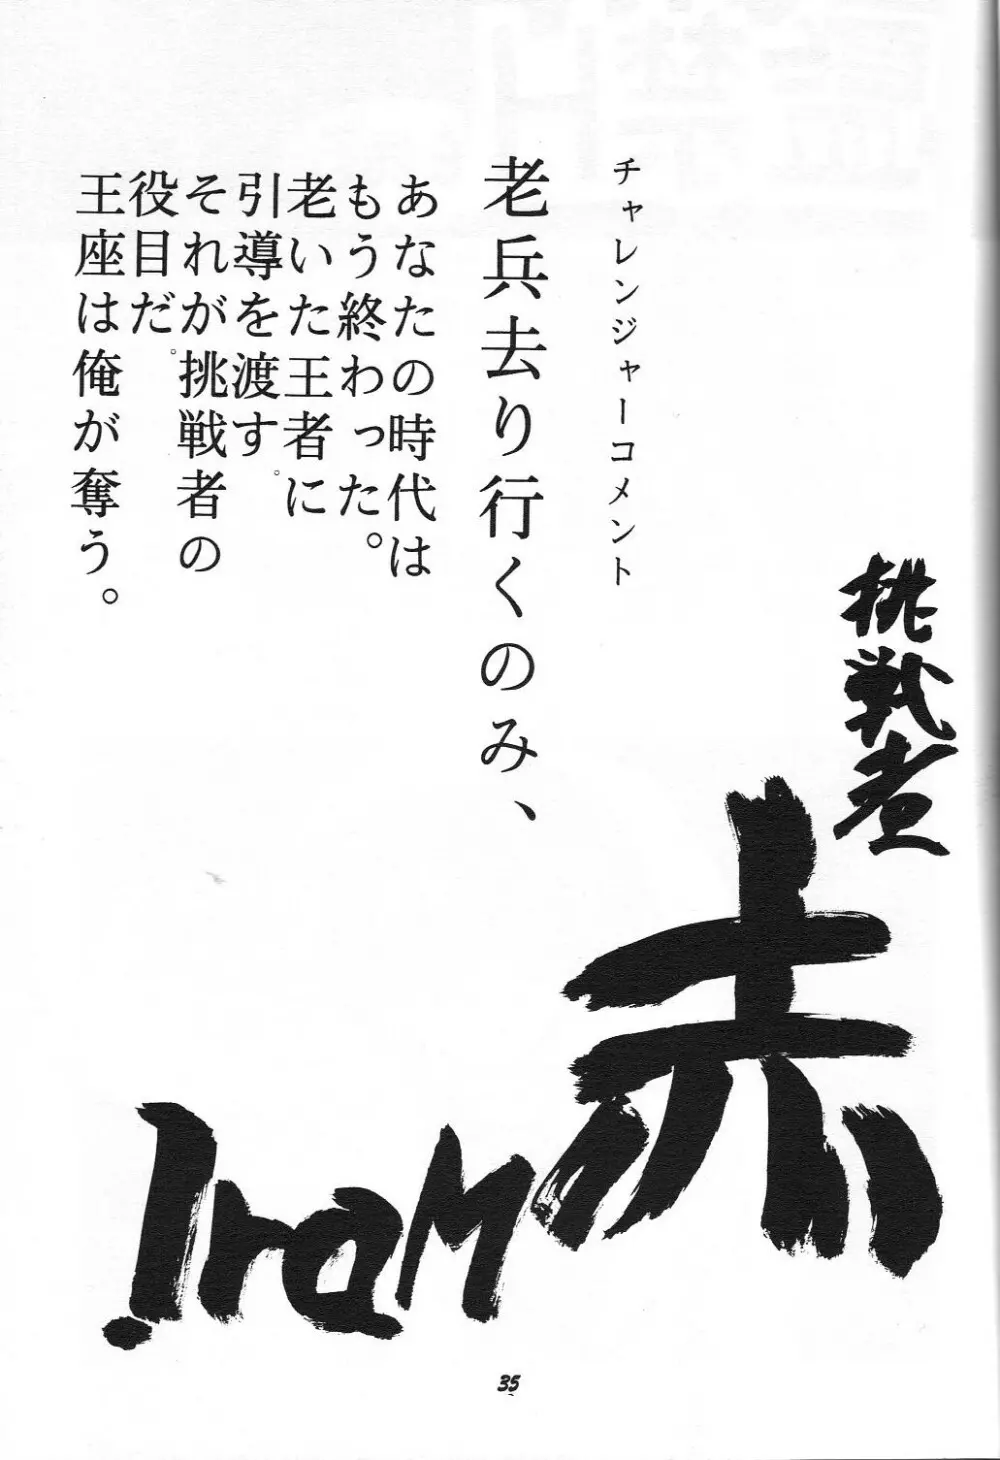 挑戦者
赤
チャレンジャーコメント
老兵去り行くのみ、
あなたの時代は
もう終わった。
老いた王者に
引導を渡す。
それが挑戦者の
役目だ。
王座は俺が奪う。
35